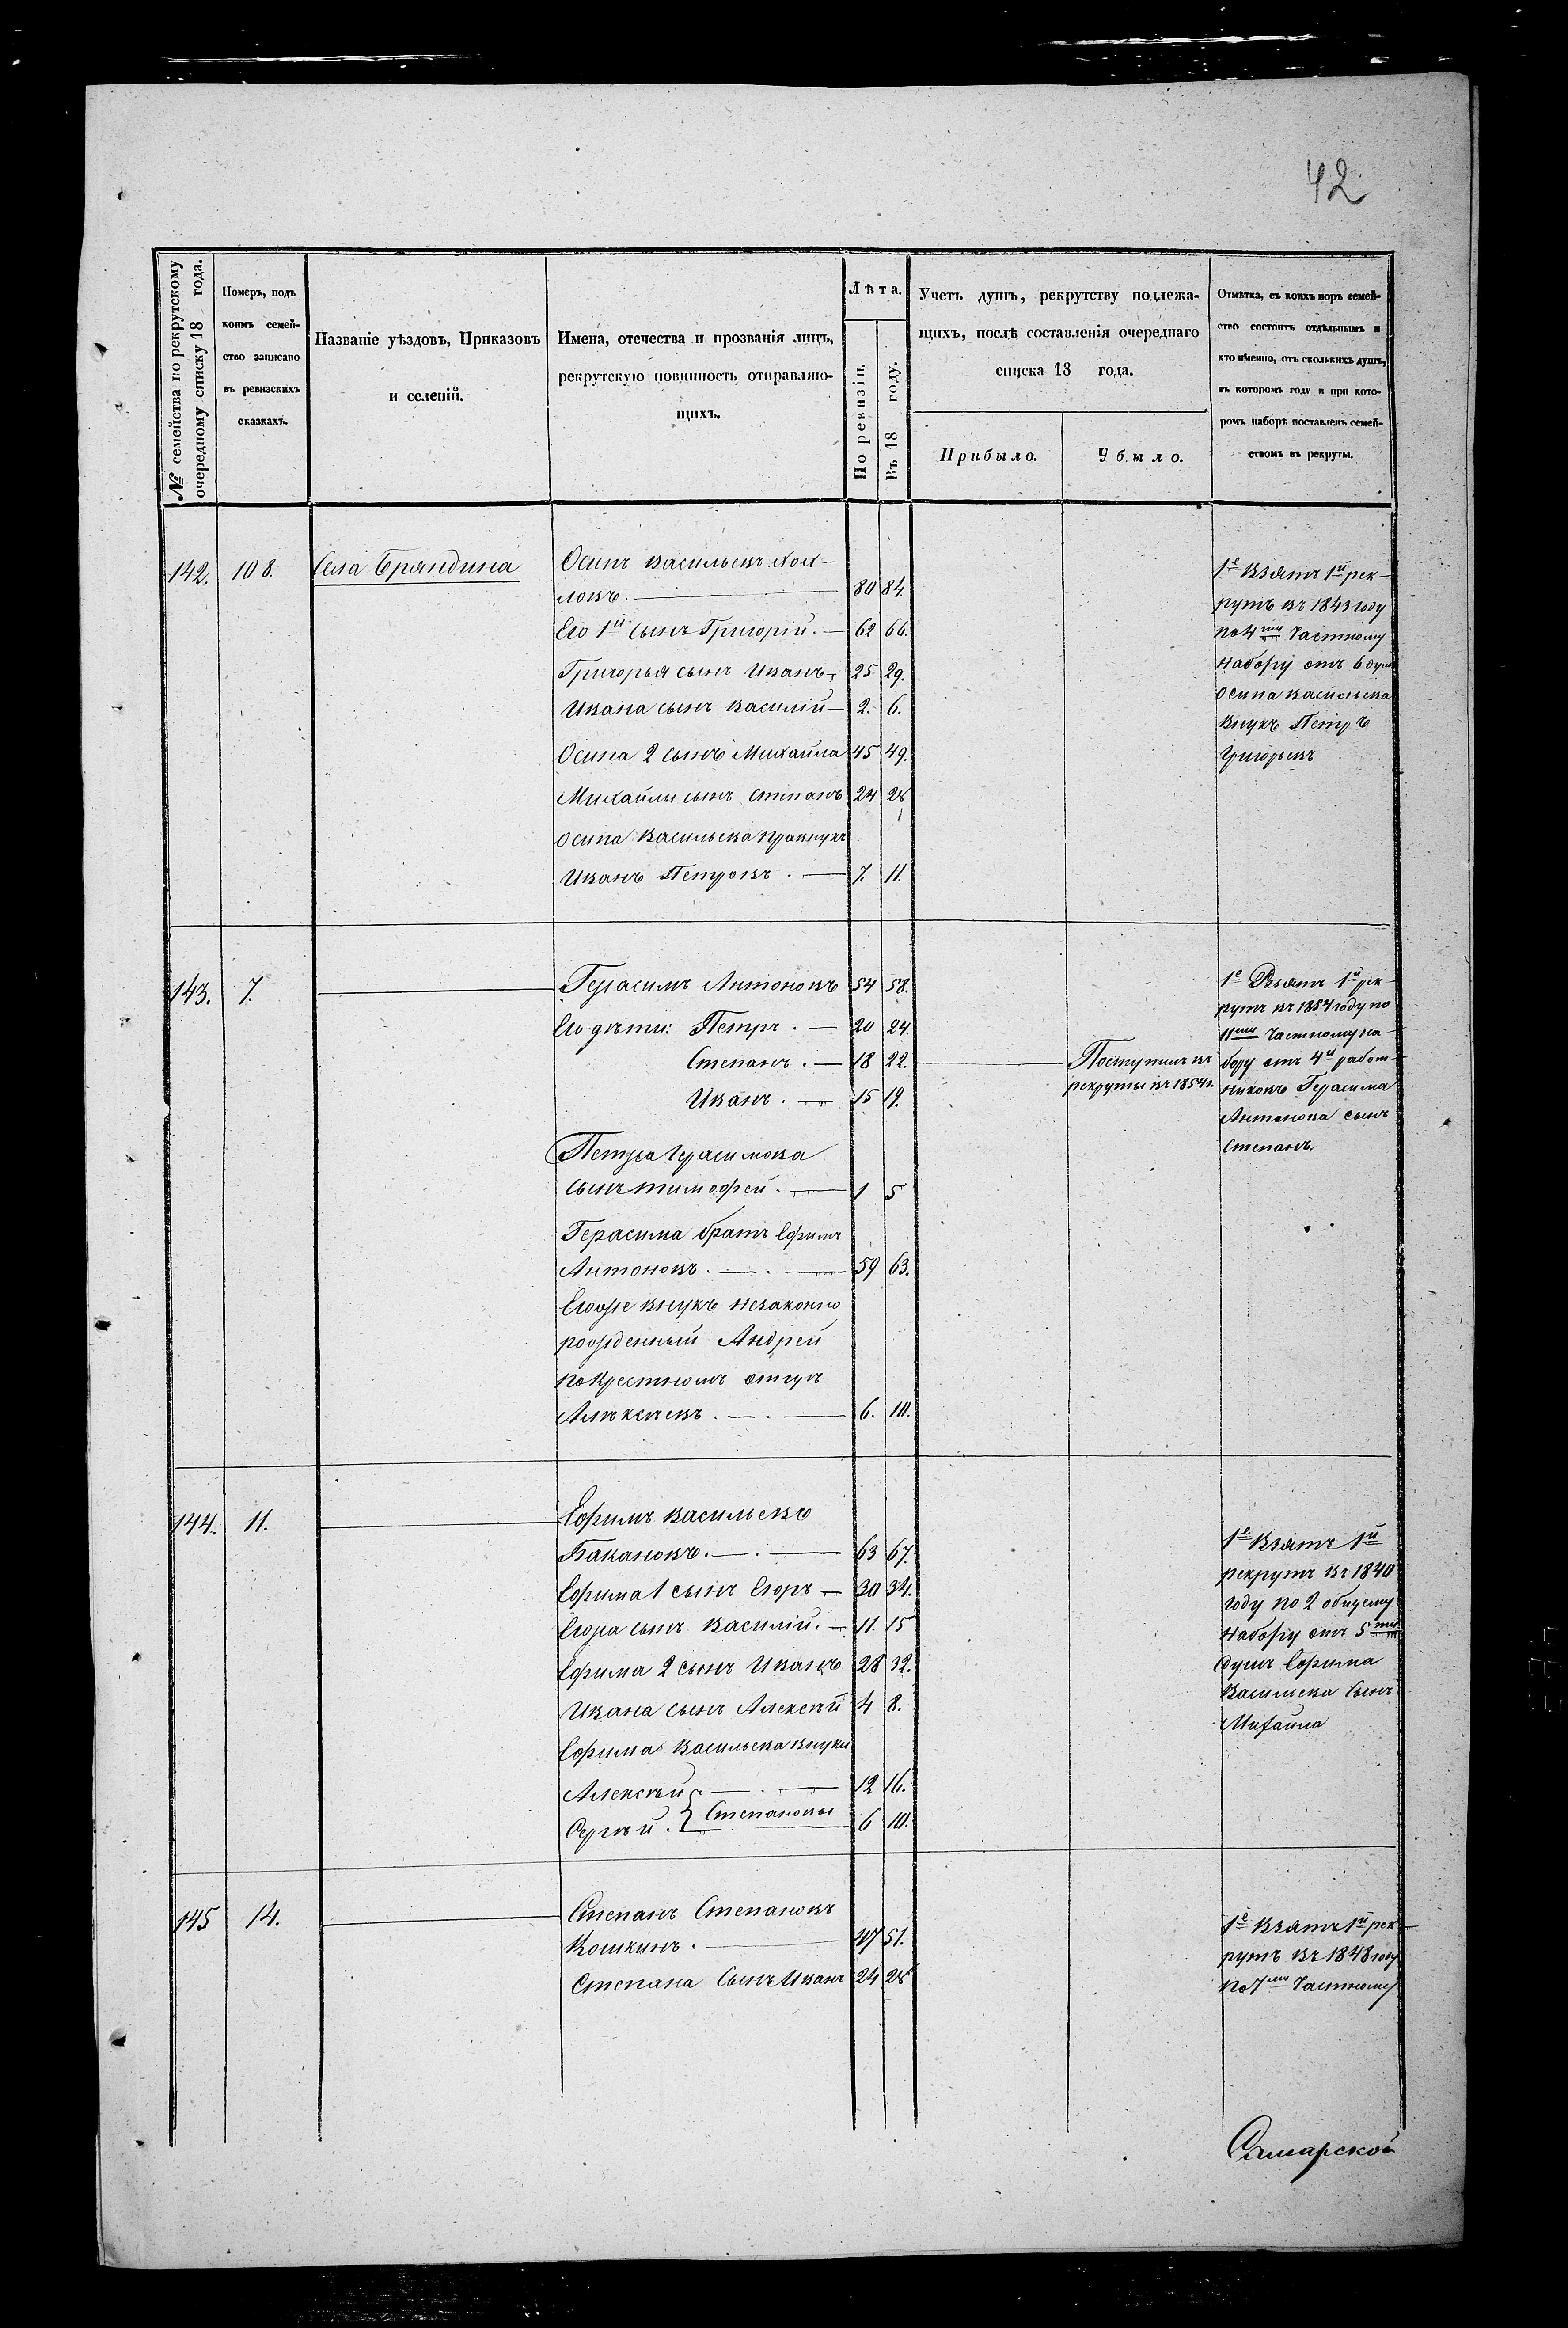 42
№ семейства по рекрутскому очередному списку 18 года.
Номеръ, подъ коимъ семейство записано въ ревизскихъ сказкахъ.
Названіе уѣздовъ, Приказовъ
и селеній.
Имена, отечества и прозванія лицъ,
рекрутскую повинность отправляю-
щихъ.
Лѣта.
По ревизіи.
Въ 18 году.
Учетъ душъ, рекрутству подлежа-
щихъ, послѣ составленія очереднаго
списка 18 года.
Прибыло.
Убыло.
Отмѣтка, съ коихъ поръ семей-
ство состоитъ отдѣльнымъ и
кто именно, отъ сколькихъ душъ,
въ которомъ году и при кото-
ромъ наборѣ поставленъ семей-
ствомъ въ рекруты.
142. 108. Села Бряндина
Осипъ Васильевъ Хох-
ловъ. 80 84.
Его 1й сынъ Григорій. 62 66.
Григорья сынъ Иванъ 25 29.
Ивана сынъ Василій 2. 6.
Осипа 2 сынъ Михайла 45 49.
Михайлы сынъ Степанъ 24 28
Осипа Васильева правнукъ
Иванъ Петровъ. 7. 11.
1е Взятъ 1й рек-
рутъ въ 1843 году
по 4му Частному
набору отъ 6 душъ
Осипа Васильева
внукъ Петръ
Григорьевъ
143. 7.
Герасимъ Антоновъ 54 58.
Его дѣти: Петръ. 20 24.
Степанъ. 18 22.
Иванъ. 15 19.
Петра Герасимова
сынъ Тимофей. 1 5
Герасима братъ Ефимъ
Антоновъ. 59 63.
Егоже внукъ незаконно
рожденный Андрей
по крестномъ отцѣ
Алѣксѣевъ. 6. 10.
Поступилъ въ
рекруты въ 1854 г.
1е Взятъ 1й рек-
рутъ въ 1854 году по
11му Частному на-
бору отъ 4й работ-
никовъ Герасима
Антонова сынъ
Степанъ.
144. 11.
Ефимъ Васильевъ
Бакановъ. 63 67.
Ефима 1 сынъ Егоръ 30 34.
Егора сынъ Василій. 11. 15
Ефима 2 сынъ Иванъ 28 32.
Ивана сынъ Алексѣй 4 8.
Ефима Васильева внуки
Алексѣй 12 16.
Сергѣй. } Степановы 6 10.
1е Взятъ 1й
рекрутъ въ 1840
году по 2 общему
набору отъ 5ти
душъ Ефима
Васильева сынъ
Михайла
145 14.
Степанъ Степановъ
Кошкинъ. 47 51.
Степана сынъ Иванъ 24 28
1е Взятъ 1й рек-
рутъ въ 1848 году
по 7му Частному
Самарской